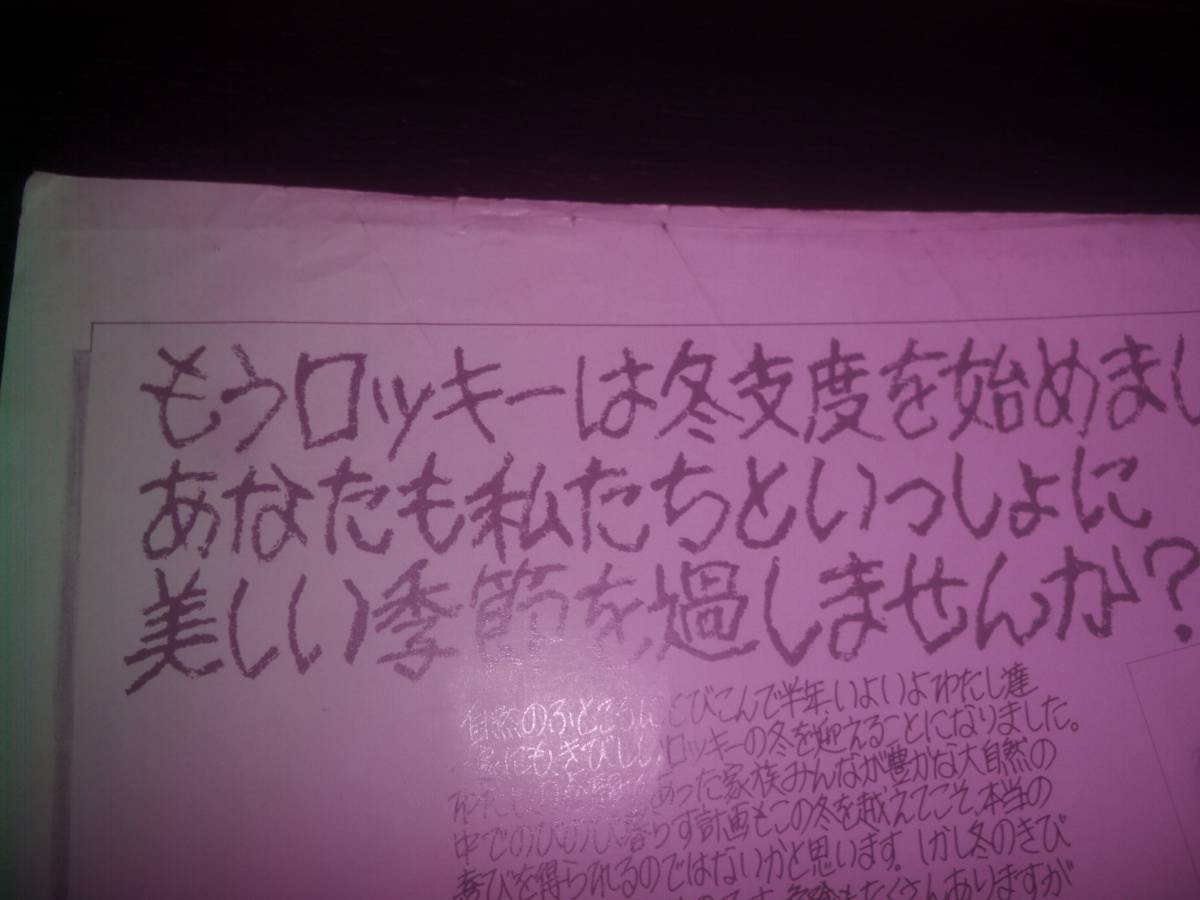 もうロッキーは冬支度を始めまし
あなたも私たちといっしょに
美しい季節を過しませんか?
自然のふところにとびこんで半年、いよいよわたし達
にもきびしいロッキーの冬を迎えることになりました。
あった家族みんなが豊かな大自然の
中でのびのび暮らす計画もこの冬を越えてこそ、本当の
喜びを得られるのではないかと思います。しかし冬のきび
たくさんありますが